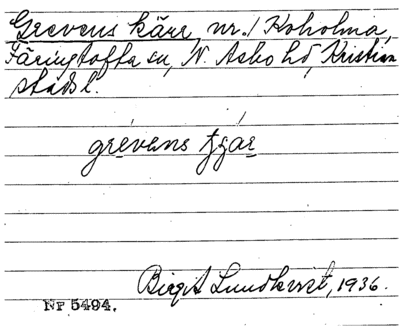 Grevens kärr, nr. 1 Koholma,
Färingtofta sn, N. Asbo hd, Kristian
stads l.
grévens tʃär
Birgit Lundkvist, 1936.
Nr 5494.